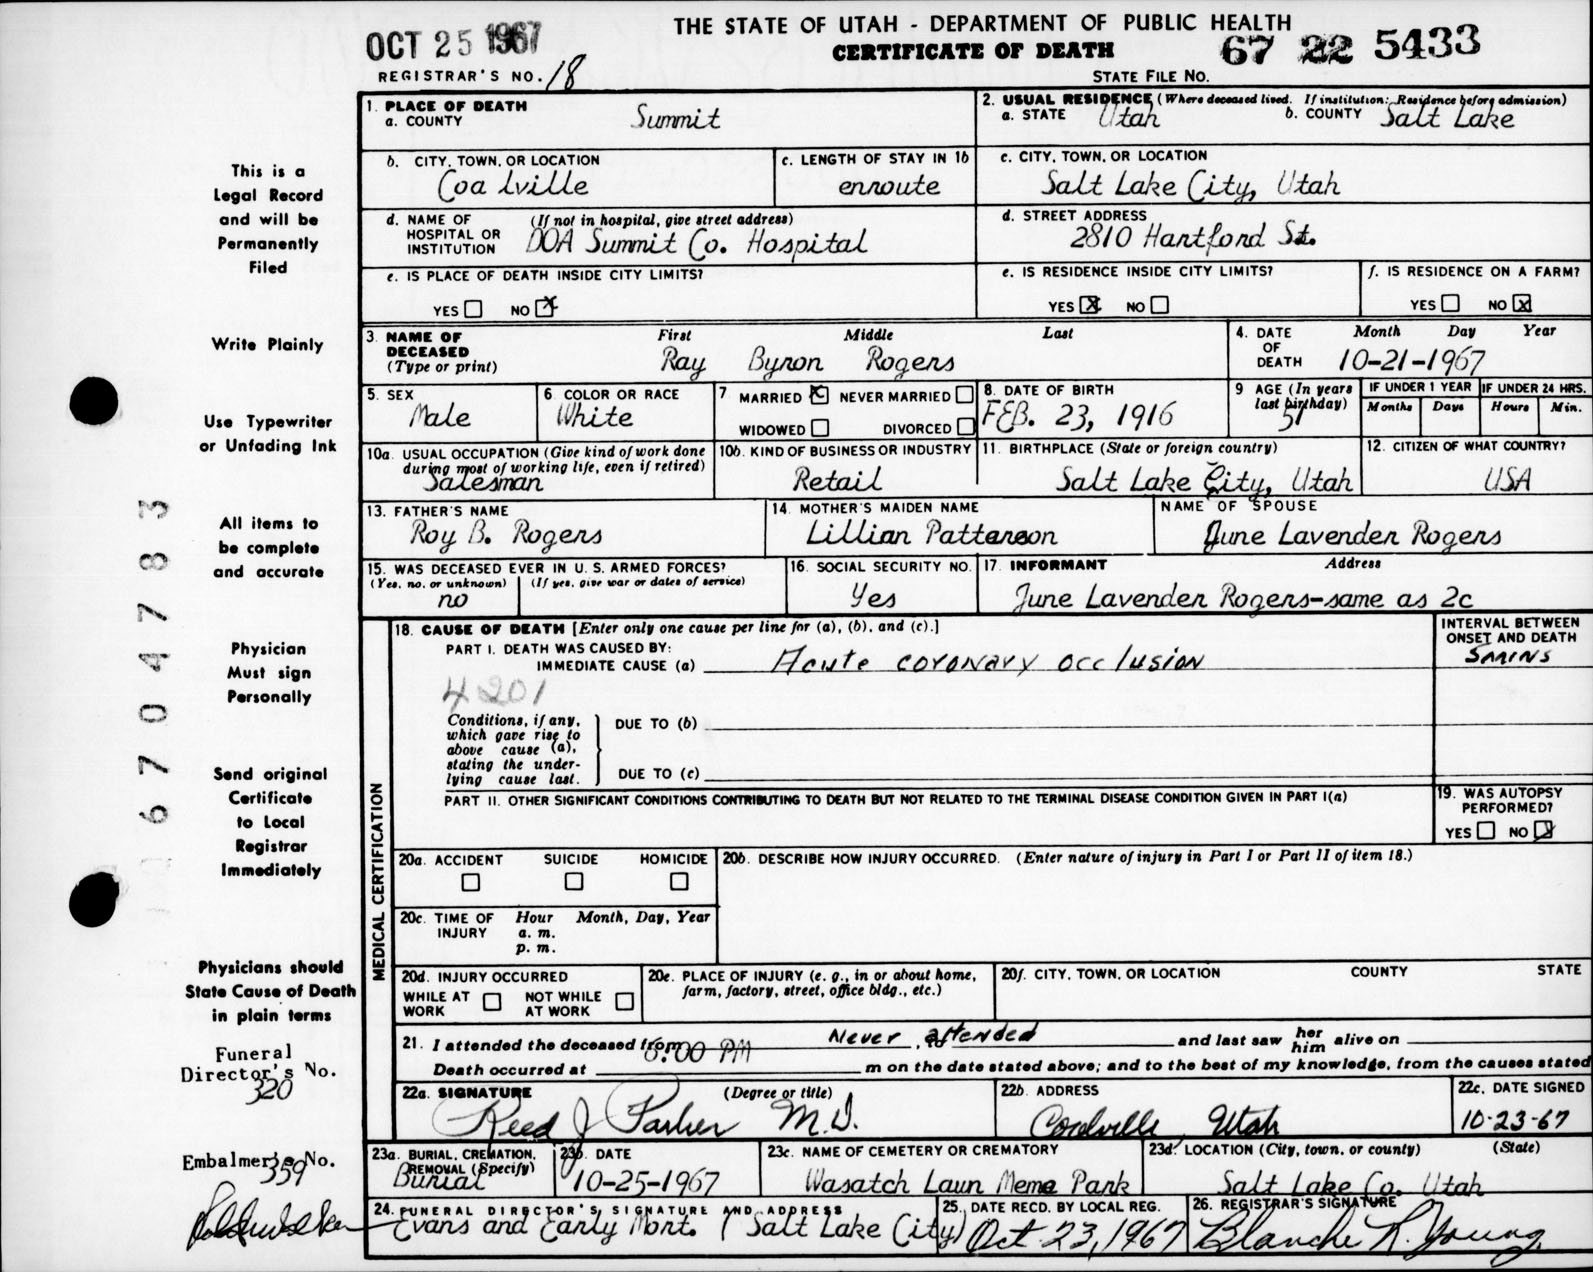 THE STATE OF UTAH - DEPARTMENT OF PUBLIC HEALTH
OCT 25 1967
CERTIFICATE OF DEATH
67 22 5433
REGISTRAR'S NO. 18
STATE FILE NO.
1. PLACE OF DEATH
a. COUNTY
Summit
2. USUAL RESIDENCE (Where deceased lived. If institution: Residence before admission)
a. STATE Utah
b. COUNTY Salt Lake
b. CITY, TOWN, OR LOCATION
Coalville
c. LENGTH OF STAY IN 1b
enroute
c. CITY, TOWN, OR LOCATION
Salt Lake City, Utah
d. NAME OF HOSPITAL OR INSTITUTION
(If not in hospital, give street address)
DOA Summit Co. Hospital
d. STREET ADDRESS
2810 Hartford St.
e. IS PLACE OF DEATH INSIDE CITY LIMITS?
YES NO X
e. IS RESIDENCE INSIDE CITY LIMITS?
YES X NO
f. IS RESIDENCE ON A FARM?
YES NO X
3. NAME OF DECEASED (Type or print)
First Middle Last
Ray Byron Rogers
4. DATE OF DEATH
Month Day Year
10-21-1967
5. SEX
Male
6. COLOR OR RACE
White
7. MARRIED X NEVER MARRIED
WIDOWED DIVORCED
8. DATE OF BIRTH
FEB. 23, 1916
9 AGE (In years last birthday)
51
IF UNDER 1 YEAR
Months Days
IF UNDER 24 HRS.
Hours Min.
10a. USUAL OCCUPATION (Give kind of work done during most of working life, even if retired)
Salesman
10b. KIND OF BUSINESS OR INDUSTRY
Retail
11. BIRTHPLACE (State or foreign country)
Salt Lake City, Utah
12. CITIZEN OF WHAT COUNTRY?
USA
13. FATHER'S NAME
Roy B. Rogers
14. MOTHER'S MAIDEN NAME
Lillian Patterson
NAME OF SPOUSE
June Lavender Rogers
15. WAS DECEASED EVER IN U. S. ARMED FORCES?
(Yes, no, or unknown) (If yes, give war or dates of service)
no
16. SOCIAL SECURITY NO.
Yes
17. INFORMANT Address
June Lavender Rogers-same as 2c
MEDICAL CERTIFICATION
18. CAUSE OF DEATH [Enter only one cause per line for (a), (b), and (c).]
PART I. DEATH WAS CAUSED BY:
IMMEDIATE CAUSE (a) Acute coronary occlusion
INTERVAL BETWEEN ONSET AND DEATH
5mins
4201
Conditions, if any, which gave rise to above cause (a), stating the underlying cause last.
DUE TO (b)
DUE TO (c)
PART II. OTHER SIGNIFICANT CONDITIONS CONTRIBUTING TO DEATH BUT NOT RELATED TO THE TERMINAL DISEASE CONDITION GIVEN IN PART I(a)
19. WAS AUTOPSY PERFORMED?
YES NO X
20a. ACCIDENT SUICIDE HOMICIDE
20b. DESCRIBE HOW INJURY OCCURRED. (Enter nature of injury in Part I or Part II of item 18.)
20c. TIME OF INJURY
Hour Month, Day, Year
a. m.
p. m.
20d. INJURY OCCURRED
WHILE AT WORK
NOT WHILE AT WORK
20e. PLACE OF INJURY (e. g., in or about home, farm, factory, street, office bldg., etc.)
20f. CITY, TOWN, OR LOCATION COUNTY STATE
21. I attended the deceased from Never attended and last saw her him alive on
Death occurred at :00 PM m on the date stated above; and to the best of my knowledge, from the causes stated
22a. SIGNATURE (Degree or title)
Reed J Parker M.D.
22b. ADDRESS
Coalville Utah
22c. DATE SIGNED
10-23-67
23a. BURIAL, CREMATION, REMOVAL (Specify)
Burial
23b. DATE
10-25-1967
23c. NAME OF CEMETERY OR CREMATORY
Wasatch Lawn Meme Park
23d. LOCATION (City, town, or county) (State)
Salt Lake Co. Utah
24. FUNERAL DIRECTOR'S SIGNATURE AND ADDRESS
Evans and Early Mort. (Salt Lake City)
25. DATE RECD. BY LOCAL REG.
Oct 23, 1967
26. REGISTRAR'S SIGNATURE
Blanche R. Young
This is a
Legal Record
and will be
Permanently
Filed
Write Plainly
Use Typewriter
or Unfading Ink
All items to
be complete
and accurate
Physician
Must sign
Personally
Send original
Certificate
to Local
Registrar
Immediately
Physicians should
State Cause of Death
in plain terms
Funeral
Director's No.
320
Embalmer's No.
359
6704783